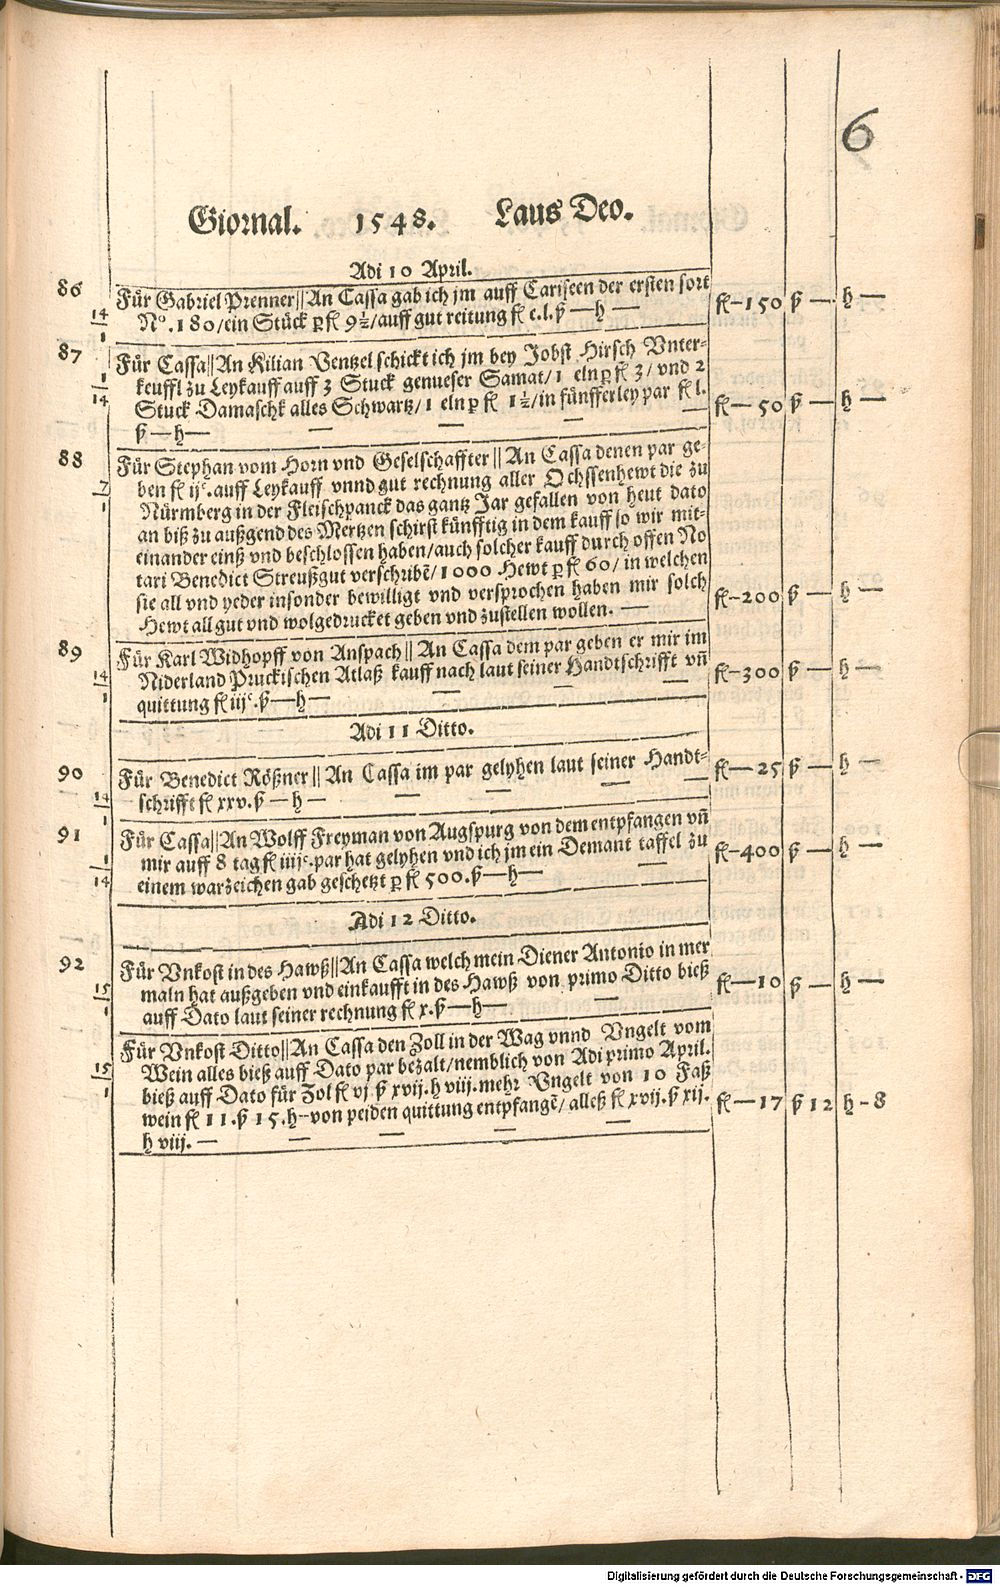 6
Giornal. 1548. Laus Deo.
Adi 10 April.
86 Für Gabriel Prenner || An Cassa gab ich jm auff Cariseen der ersten sort
14/1 N°. 180/ ein Stück ꝑ fl 9½/ auff gut reitung fl c.l. ß — h — fl—150 ß — h —
87 Für Cassa || An Kilian Ventzel schickt ich jm bey Jobst Hirsch Vnter-
1/14 keuffl zu Leykauff auff 3 Stuck genueser Samat/ 1 eln ꝑ fl 3/ vnd 2
Stuck Damaschk alles Schwartz/ 1 eln ꝑ fl 1½/ in fünfferley par fl l. fl— 50 ß — h —
ß — h —
88 Für Stephan vom Horn vnd Geselschaffter || An Cassa denen par ge-
7/1 ben fl ijᶜ. auff Leykauff vnnd gut rechnung aller Ochssenhewt die zu
Nürmberg in der Fleischpanck das gantz Jar gefallen von heut dato
an biß zu außgend des Mertzen schirst künfftig in dem kauff so wir mit-
einander einß vnd beschlossen haben/ auch solcher kauff durch offen No
tari Benedict Streußgut verschribē/ 1000 Hewt ꝑ fl 60/ in welchen
sie all vnd yeder insonder bewilligt vnd versprochen haben mir solch
Hewt all gut vnd wolgedrucket geben vnd zustellen wollen. — fl—200 ß — h —
89 Für Karl Widhopff von Anspach || An Cassa dem par geben er mir im
14/1 Niderland Pruckischen Atlaß kauff nach laut seiner Handtschrifft vñ fl—300 ß — h —
quittung fl iijᶜ. ß — h —
Adi 11 Ditto.
90 Für Benedict Rößner || An Cassa im par gelyhen laut seiner Handt- fl— 25 ß — h —
14/1 schrifft fl xxv. ß — h —
91 Für Cassa || An Wolff Freyman von Augspurg von dem entpfangen vñ
1/14 mir auff 8 tag fl iiijᶜ. par hat gelyhen vnd ich jm ein Demant taffel zu fl—400 ß — h —
einem warzeichen gab geschetzt ꝑ fl 500. ß — h —
Adi 12 Ditto.
92 Für Vnkost in des Hawß || An Cassa welch mein Diener Antonio in mer
15/1 maln hat außgeben vnd einkaufft in des Hawß von primo Ditto bieß fl—10 ß — h —
auff Dato laut seiner rechnung fl x. ß — h —
Für Vnkost Ditto || An Cassa den Zoll in der Wag vnnd Vngelt vom
15/1 Wein alles bieß auff Dato par bezalt/ nemblich von Adi primo April.
bieß auff Dato für Zol fl vj ß xvij. h viij. mehr Vngelt von 10 Faß
wein fl 11. ß 15. h— von peiden quittung entpfangē/ alleß fl xvij. ß xij. fl—17 ß 12 h-8
h viij. —
Digitalisierung gefördert durch die Deutsche Forschungsgemeinschaft - DFG